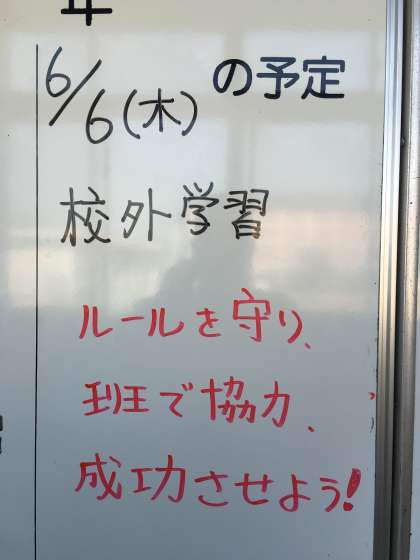 年
6/6(木)の予定
校外学習
ルールを守り、
班で協力、
成功させよう!